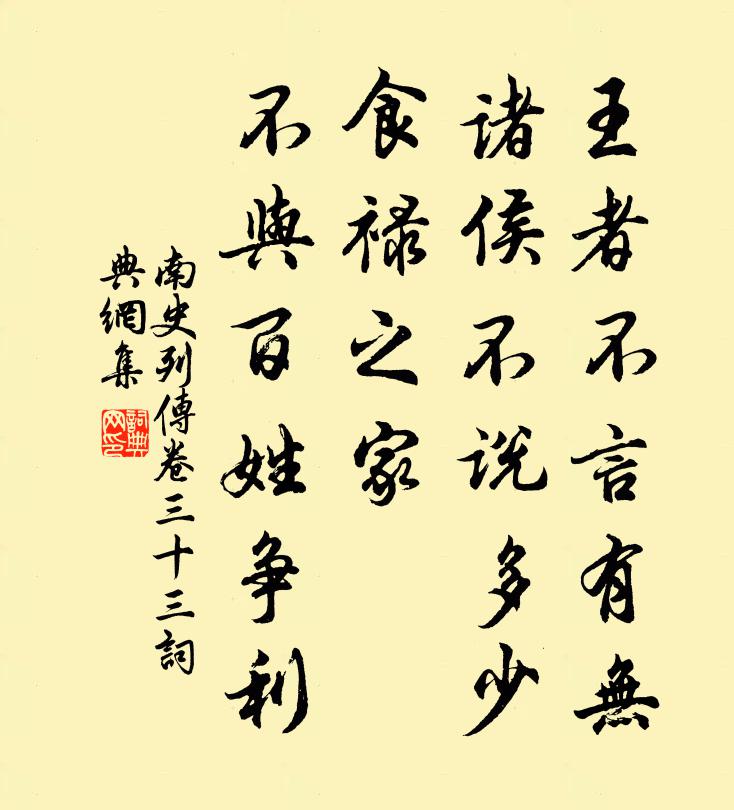 王者不言有無
诸侯不説多少
食禄之家
不與百姓争利
南史列傳卷三十三詞
典網集
詞典網印